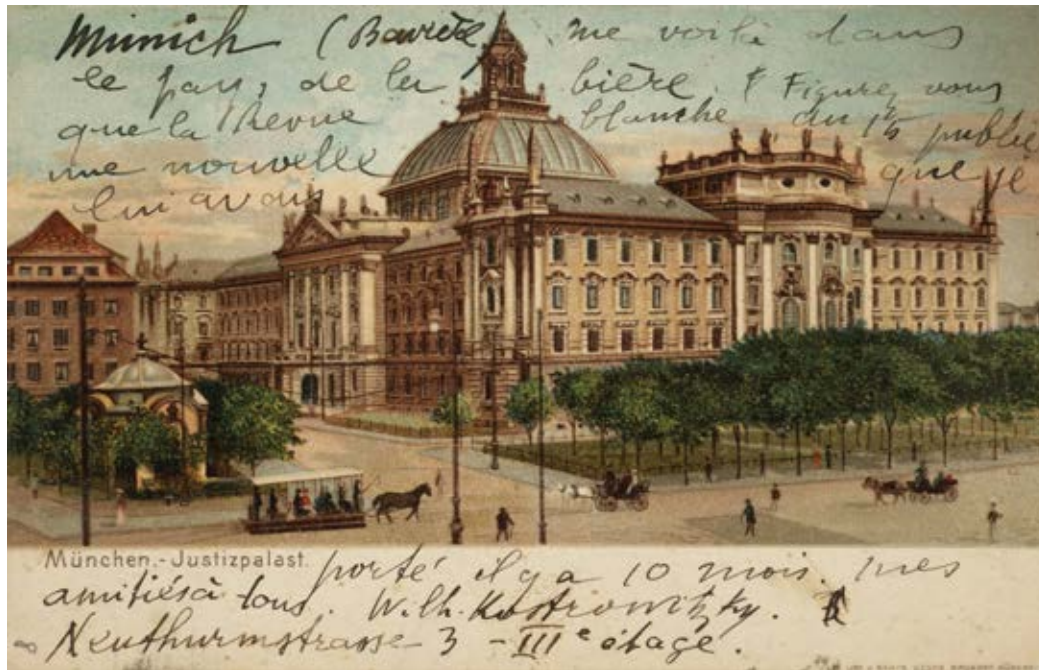 Munich (Bavière) me voilà dans
le pays de la bière. Figurez vous
que la Revue blanche du 15 publie
une nouvelle que je
lui avais
München.- Justizpalast.
porté il y a 10 mois. mes
amitiés à tous. Wilh. Kostrowitzky.
Neuthurmstrasse 3 - IIIe étage.